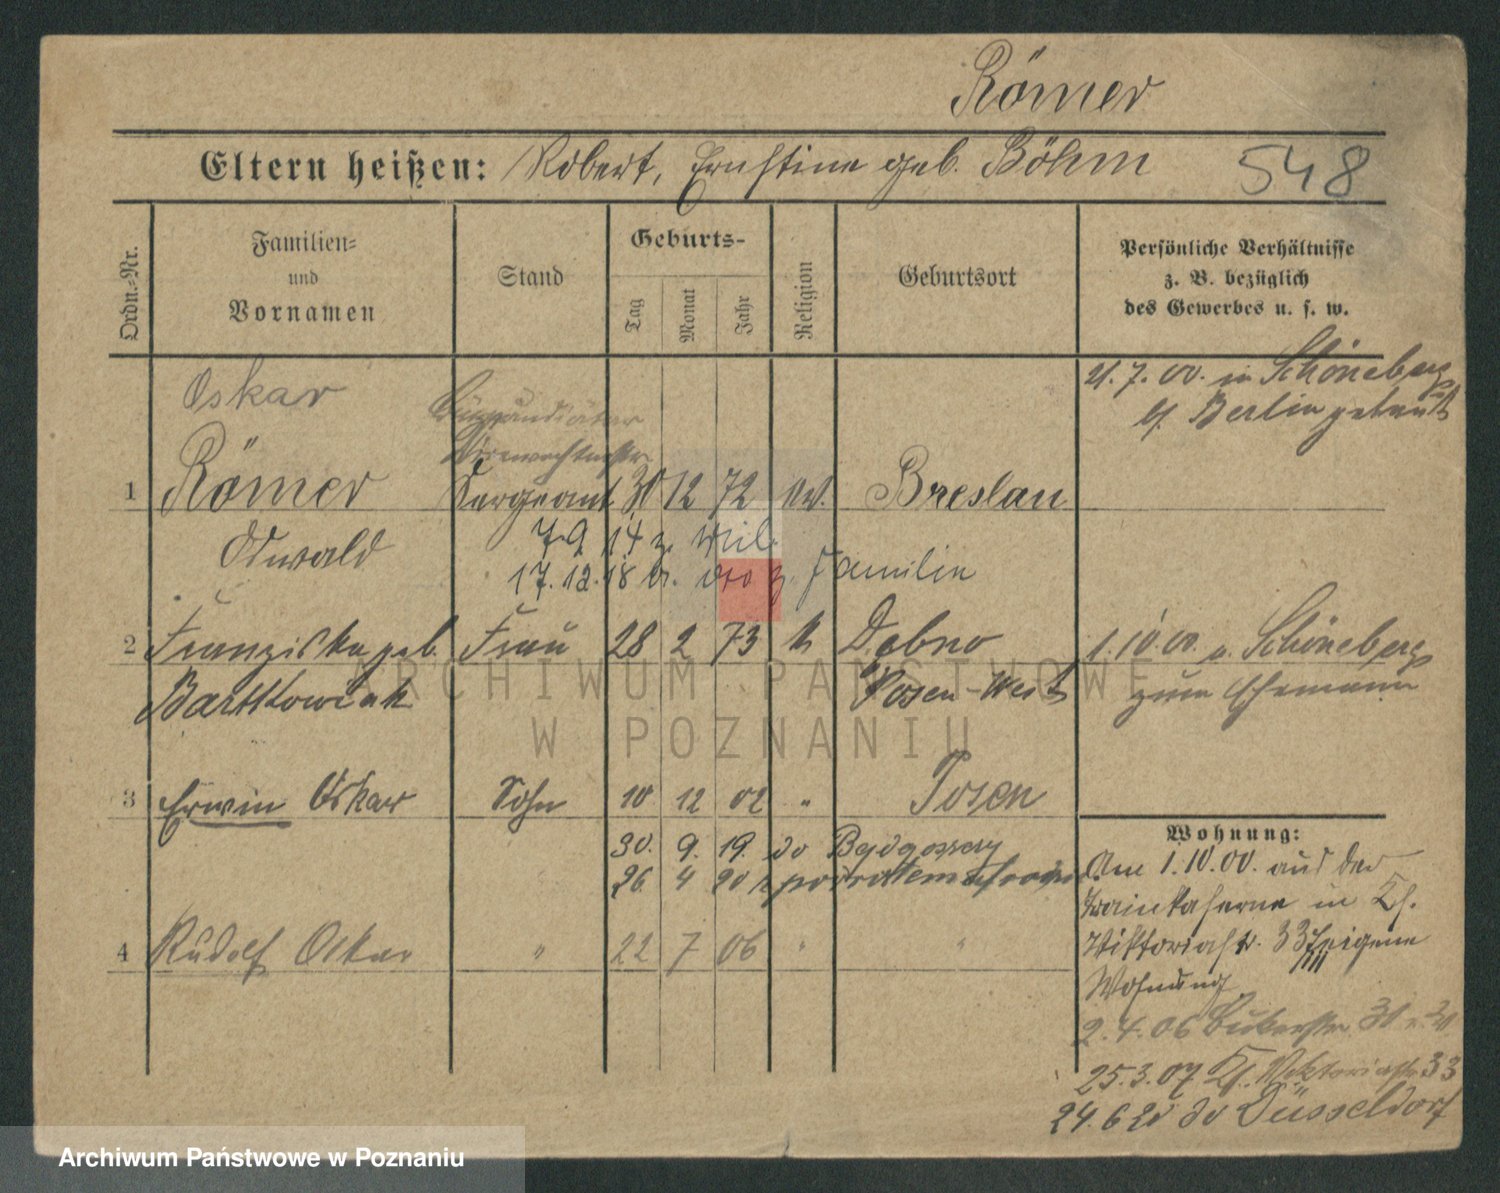 Römer
Eltern heißen: Robert, Ernstine geb. Böhm 548
Ordn.-Nr.
Familien-
und
Vornamen
Stand
Geburts-
Tag
Monat
Jahr
Religion
Geburtsort
Persönliche Verhältnisse
z. B. bezüglich
des Gewerbes u. s. w.
Oskar
21.7.00. in Schöneberg
b/ Berlin getraut
1 Römer Sergeant 30 12 72 ev. Breslau
Oswald
7 9 14 z. Mil.
17.12.18 v. do z. Familie
2 Franziska geb. Frau 28 2 73 k Debno
Bartkowiak
Posen-West
1.10.00. v. Schöneberg
zum Ehemann
3 Erwin Oskar Sohn 10 12 02 " Posen
30. 9. 19. do Bydgoszczy
26 4 20 z powrotem
4 Rudolf Oskar " 22 7 06 " "
Wohnung:
Am 1.10.00. aus der
Trainkaserne in
Viktoriastr. 33 eigene
Wohnung
2.4.06 31
25.3.07 Viktoriastr 33
24.6 20 do Düsseldorf
ARCHIWUM PAŃSTWOWE
W POZNANIU
Archiwum Państwowe w Poznaniu